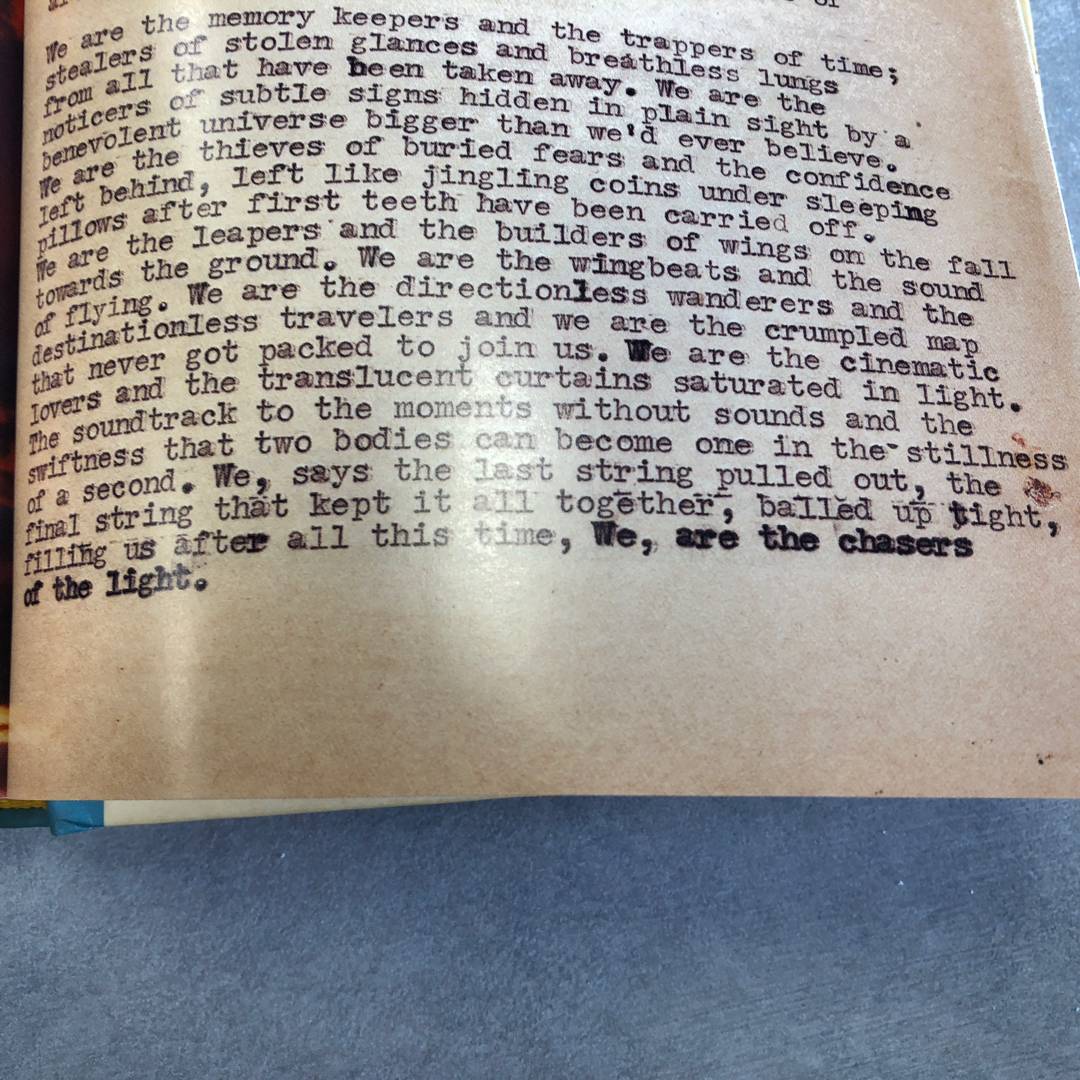 We are the memory keepers and the trappers of time;
stealers of stolen glances and breathless lungs
from all that have been taken away. We are the
noticers of subtle signs hidden in plain sight by a
benevolent universe bigger than we'd ever believe.
We are the thieves of buried fears and the confidence
left behind, left like jingling coins under sleeping
pillows after first teeth have been carried off.
We are the leapers and the builders of wings on the fall
towards the ground. We are the wingbeats and the sound
of flying. We are the directionless wanderers and the
destinationless travelers and we are the crumpled map
that never got packed to join us. We are the cinematic
lovers and the translucent curtains saturated in light.
The soundtrack to the moments without sounds and the
swiftness that two bodies can become one in the stillness
of a second. We, says the last string pulled out, the
final string that kept it all together, balled up tight,
filling us after all this time, We, are the chasers
of the light.